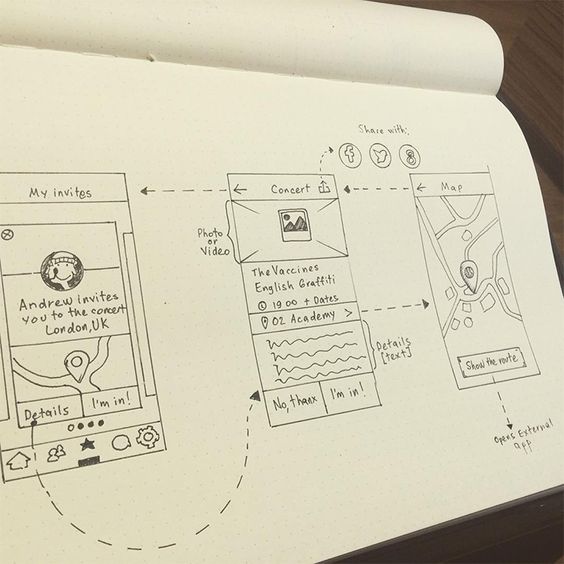 Share with:
f
8
My invites
Andrew invites
you to the concert
London, UK
Details
I'm in!
Concert
Photo
or
Video
The Vaccines
English Graffiti
19:00 + Dates
02 Academy >
Details
[text]
No, thanx
I'm in!
Map
Show the route
Opens External
app